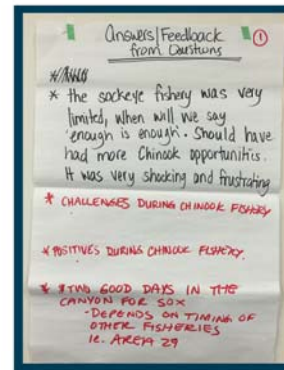 Answers/Feedback ①
from Qustions
* the sockeye fishery was very
limited, when will we say
'enough is enough'. Should have
had more Chinook opportunitis.
It was very shocking and frustrating
* CHALLENGES DURING CHINOOK FISHERY
* POSITIVES DURING CHINOOK FISHERY.
* TWO GOOD DAYS IN THE
CANYON FOR SOX
- DEPENDS ON TIMING OF
OTHER FISHERIES
IE. AREA 29